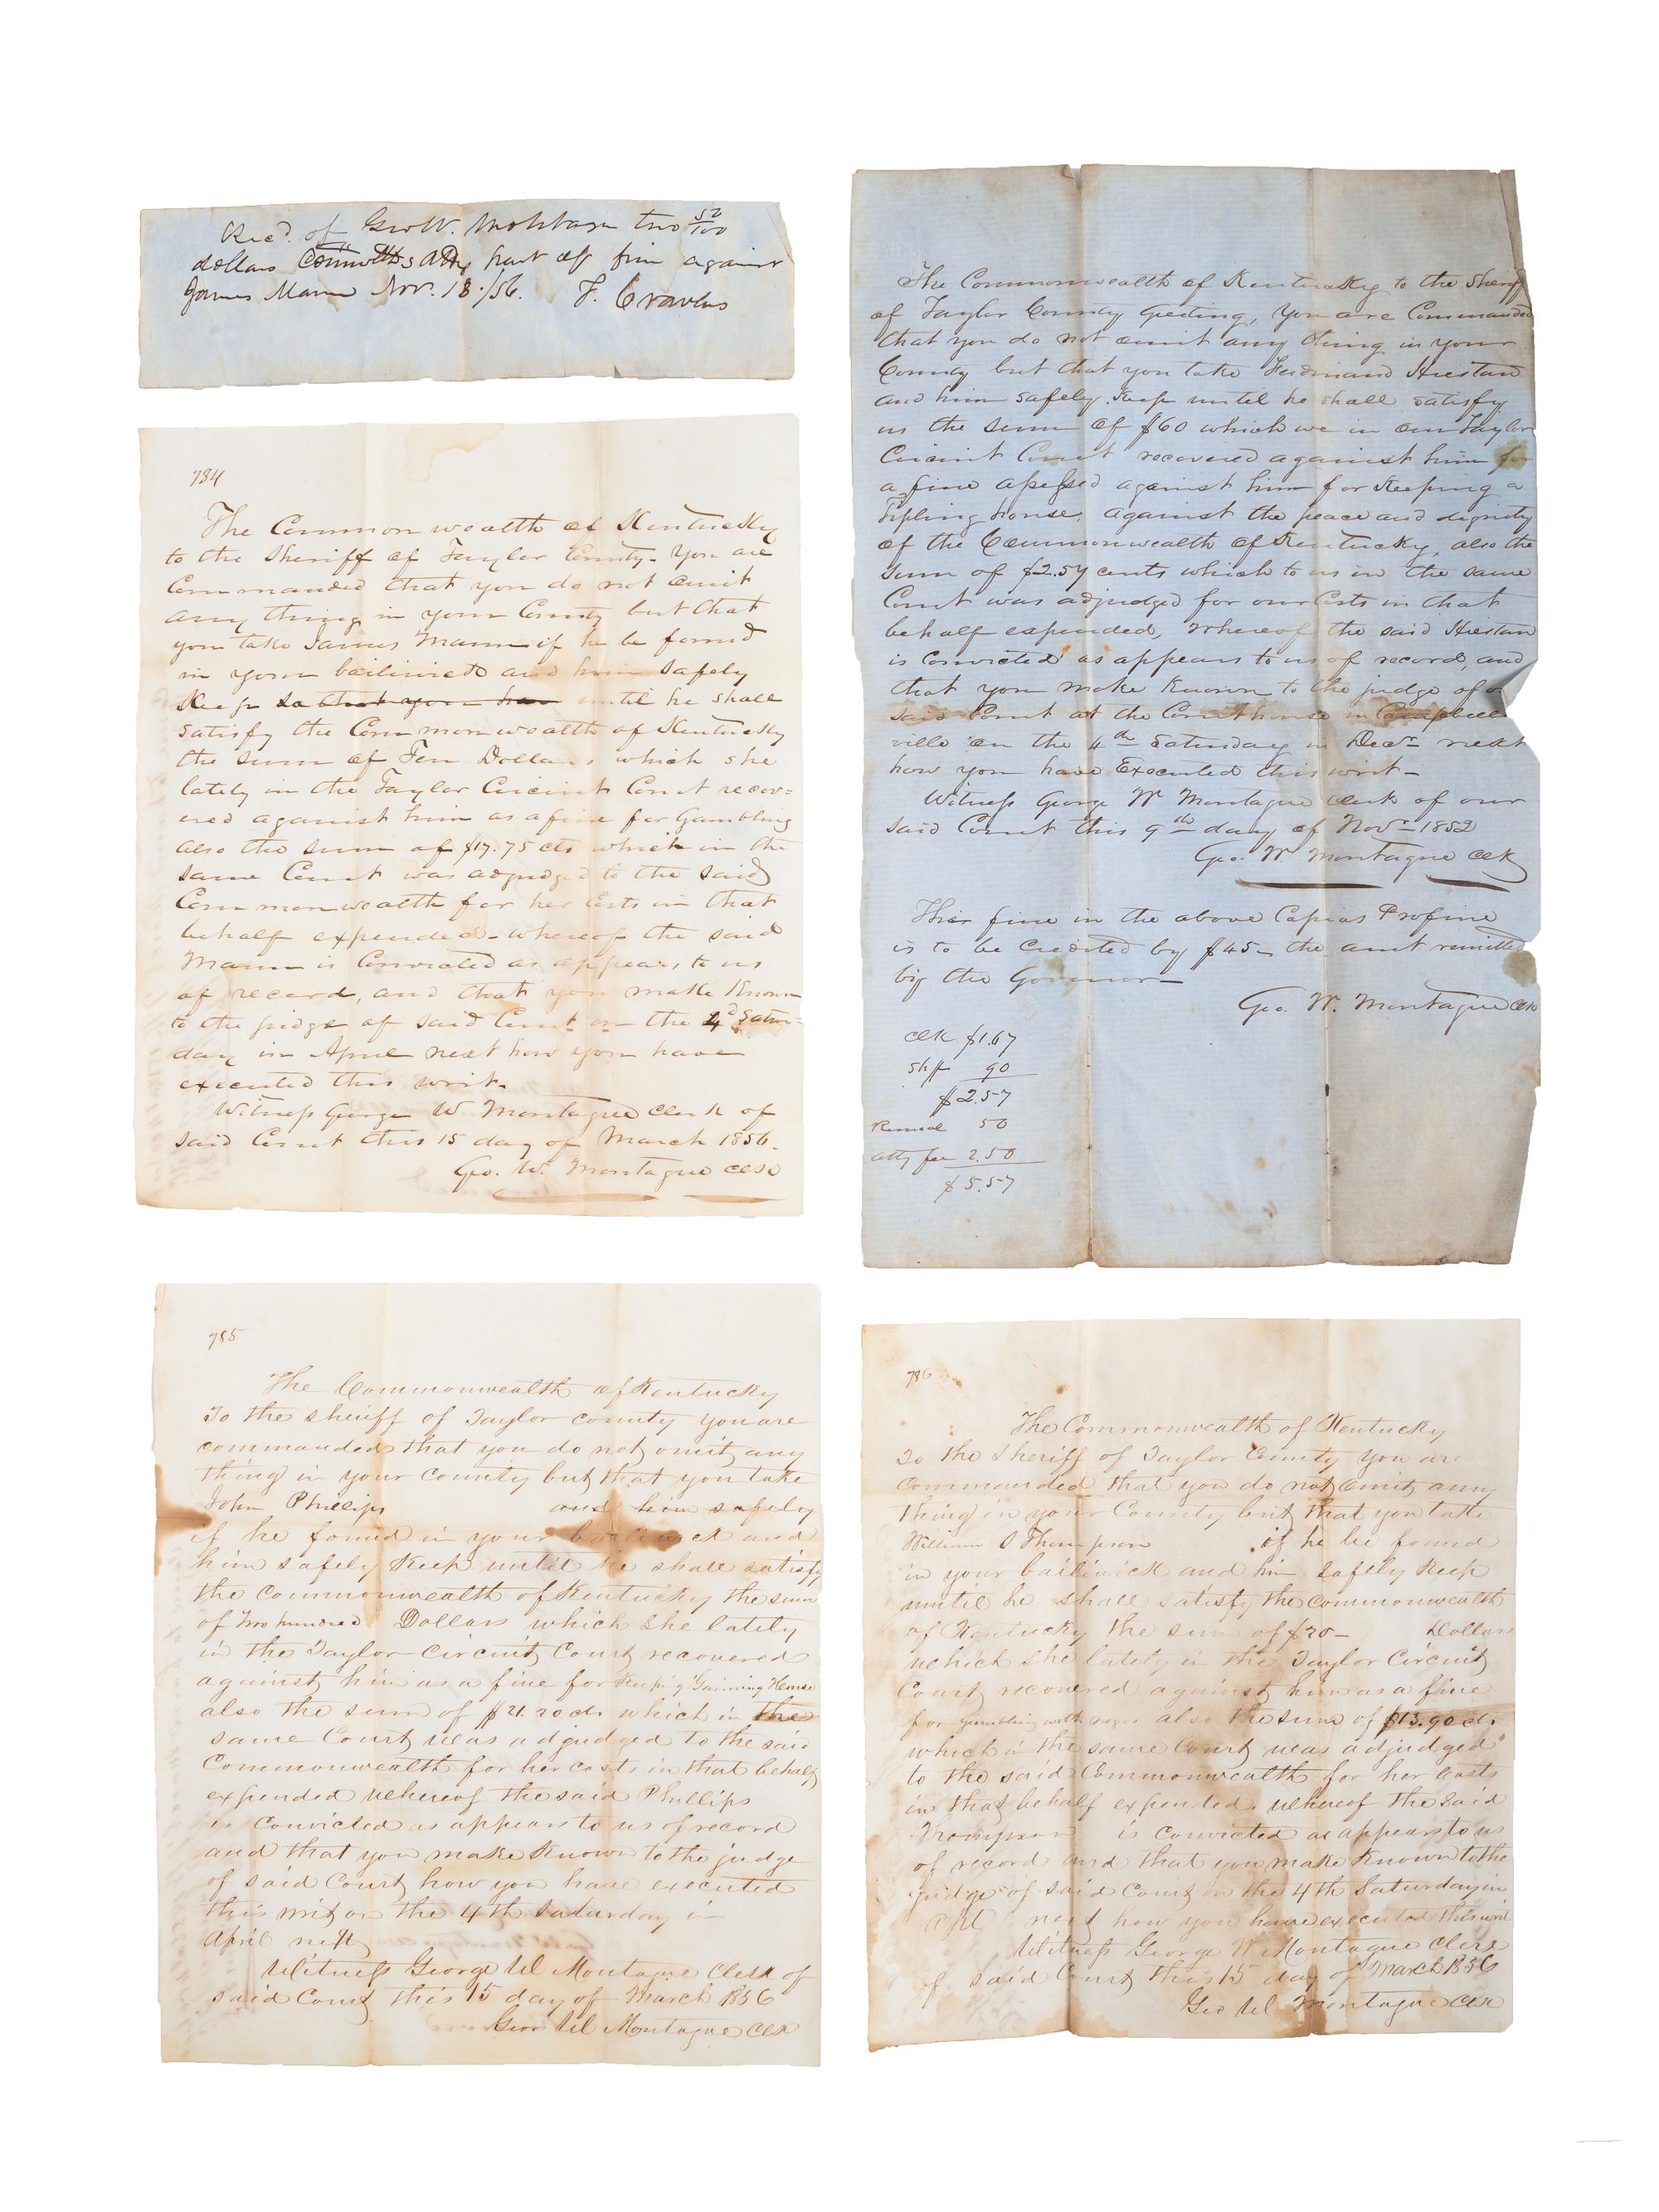 Recd. of Geo W. two 52/100
dollars Commwths Atty part of fine against
James Mann Nov. 18./56. F. Cravens
734
The Commonwealth of Kentucky
to the Sheriff of Taylor County. You are
Commanded that you do not omit
any thing in your County but that
you take James Mann if he be found
in your bailiwick and him safely
Keep so that you have until he shall
satisfy the Commonwealth of Kentucky
the sum of Ten Dollars which she
lately in the Taylor Circuit Court recov=
ered against him as a fine for Gambling
also the sum of $17.75 cts which in the
same Court was adjudged to the said
Commonwealth for her Costs in that
behalf expended - whereof the said
Mann is Convicted as appears to us
of record, and that you make Known
to the judge of said Court on the 4d Satur=
day in April next how you have
executed this writ.
Witness George W Montague Clerk of
said Court this 15 day of March 1856.
Geo. W. Montague Clk
The Commonwealth of Kentucky to the Sheriff
of Taylor County Greeting, You are Commanded
that you do not omit any thing in your
County but that you take Ferdinand Hiestan
and him safely Keep until he shall satisfy
us the sum of $60 which we in our Taylor
Circuit Court recovered against him for
a fine assessed against him for Keeping a
Tipling house, against the peace and dignity
of the Commonwealth of Kentucky, also the
sum of $2.57 cents which to us in the same
Court was adjudged for our Costs in that
behalf expended, Whereof the said Hiestan
is Convicted as appears to us of record, and
that you make Known to the judge of
said Court at the Courthouse in Campbells
ville on the 4th Saturday in Decr next
how you have Executed this writ -
Witness George W Montague clerk of our
said Court this 9th day of Novr 1852
Geo. W Montague Clk
This fine in the above Capias Profine
is to be Credited by $45- the amt remitted
by the Governor -
Geo. W. Montague Clk
Clk $1.67
Shff 90
$2.57
50
atty fee 2.50
$5.57
785
The Commonwealth of Kentucky
To the sheriff of Taylor county you are
commanded that you do not omit any
thing in your county but that you take
John Phillips and him safely
if he found in your bailiwick and
him safely Keep until he shall satisfy
the commonwealth of Kentucky the sum
of Two hundred Dollars which she lately
in the Taylor Circuit Court recovered
against him as a fine for Keeping Gaming House
also the sum of $21.20 cts which in the
same Court was adjudged to the said
Commonwealth for her costs in that behalf
expended whereof the said Phillips
is Convicted as appears to us of record
and that you make Known to the judge
of said Court how you have executed
this writ on the 4th Saturday in
April next
Witness George W Montague Clerk of
said Court this 15 day of March 1856
Geo W Montague Clk
786
The Commonwealth of Kentucky
To the Sheriff of Taylor County You are
commanded that you do not omit any
thing in your County but that you take
William S Thompson if he be found
in your bailiwick and him safely Keep
until he shall satisfy the commonwealth
of Kentucky the sum of $20- Dollars
which she lately in the Taylor Circuit
Court recovered against him as a fine
for Gambling with negro also the sum of $13.90 cts
which in the same Court was adjudged
to the said Commonwealth for her Costs
in that behalf expended, whereof the said
Thompson is convicted as appears to us
of record and that you make Known to the
judge of said Court on the 4th Saturday in
next how you have executed this writ
Witness George W Montague Clerk
of said Court this 15 day of March 1856
Geo W Montague Clk